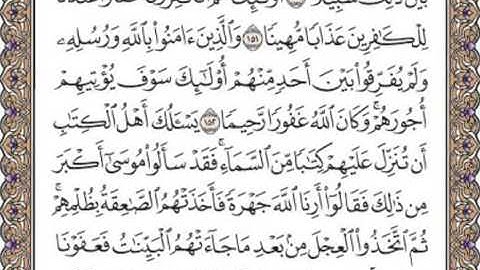 لِلْكَٰفِرِينَ عَذَابًا مُّهِينًا ١٥١ وَٱلَّذِينَ ءَامَنُوا۟ بِٱللَّهِ وَرُسُلِهِۦ
وَلَمْ يُفَرِّقُوا۟ بَيْنَ أَحَدٍ مِّنْهُمْ أُو۟لَٰٓئِكَ سَوْفَ يُؤْتِيهِمْ
أُجُورَهُمْ ۗ وَكَانَ ٱللَّهُ غَفُورًا رَّحِيمًا ١٥٢ يَسْـَٔلُكَ أَهْلُ ٱلْكِتَٰبِ
أَن تُنَزِّلَ عَلَيْهِمْ كِتَٰبًا مِّنَ ٱلسَّمَآءِ ۚ فَقَدْ سَأَلُوا۟ مُوسَىٰٓ أَكْبَرَ
مِن ذَٰلِكَ فَقَالُوٓا۟ أَرِنَا ٱللَّهَ جَهْرَةً فَأَخَذَتْهُمُ ٱلصَّٰعِقَةُ بِظُلْمِهِمْ ۚ
ثُمَّ ٱتَّخَذُوا۟ ٱلْعِجْلَ مِنۢ بَعْدِ مَا جَآءَتْهُمُ ٱلْبَيِّنَٰتُ فَعَفَوْنَا